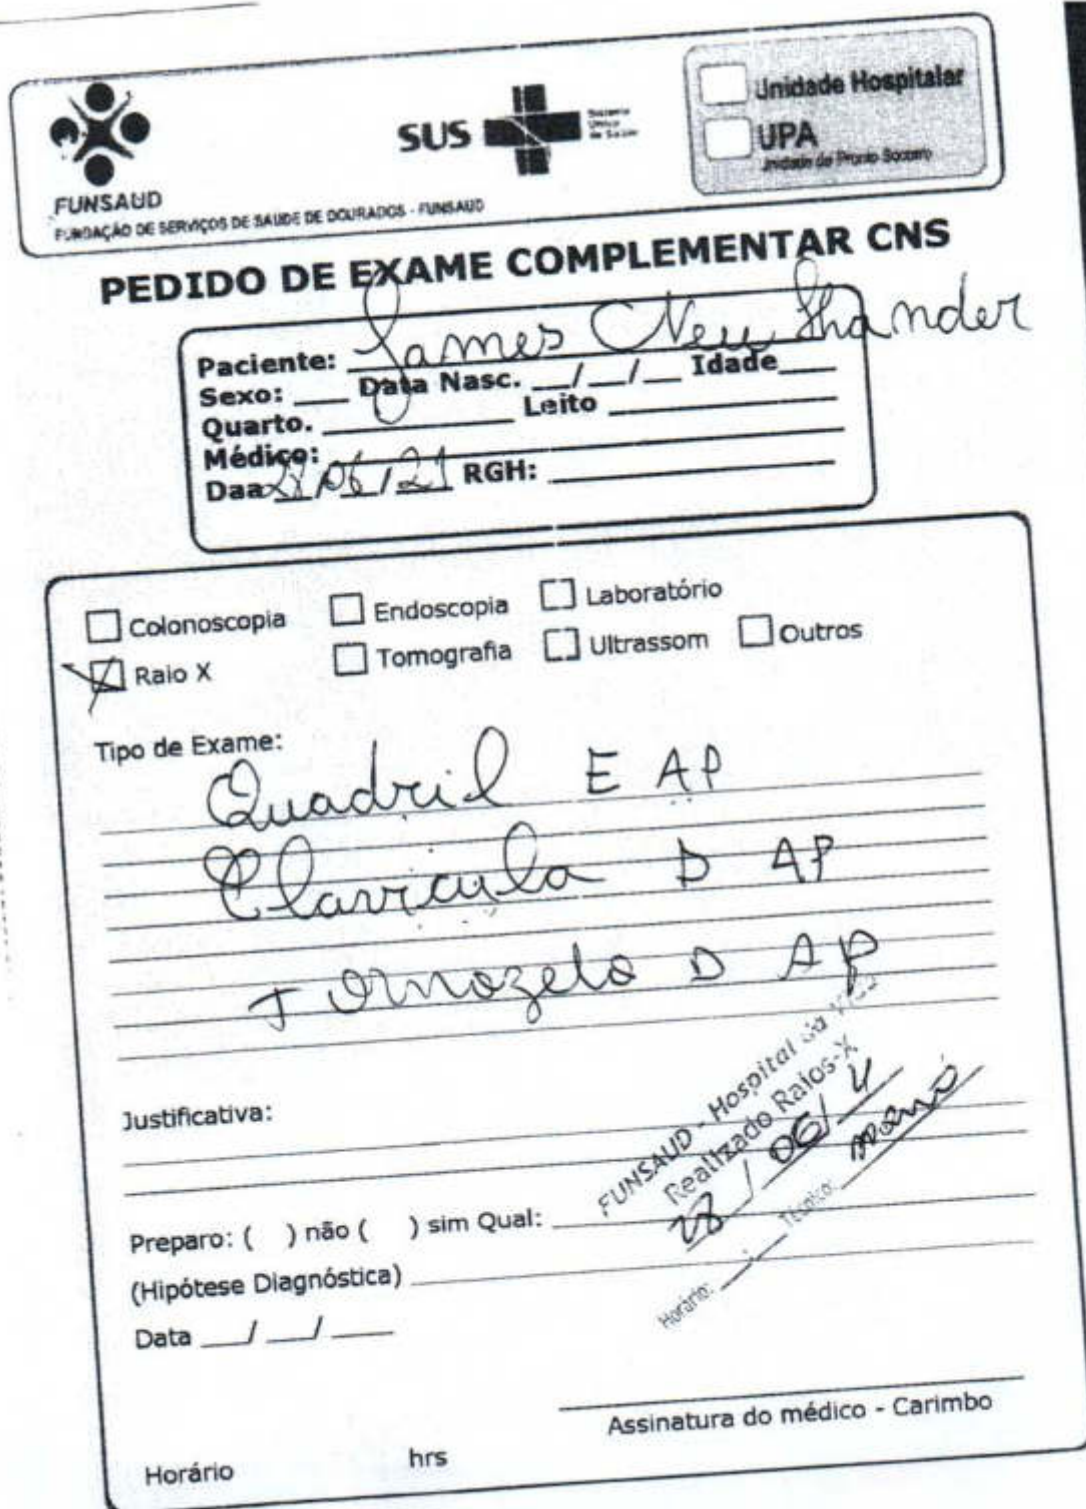 FUNSAUD
FUNDAÇÃO DE SERVIÇOS DE SAUDE DE DOURADOS - FUNSAUD
SUS Sistema Único de Saúde
Unidade Hospitalar
UPA
Unidade de Pronto Socorro
PEDIDO DE EXAME COMPLEMENTAR CNS
Paciente: James New Shander
Sexo: ___ Data Nasc. __/__/__ Idade____
Quarto. __________ Leito __________
Médico: __________
Daa 28/06/21 RGH: __________
Colonoscopia Endoscopia Laboratório
Raio X Tomografia Ultrassom Outros
Tipo de Exame:
Quadril E AP
Clavicula D AP
Tornozelo D AP
Justificativa:
FUNSAUD - Hospital da Vida
Realizado Raios-X
28/06/21
Técnico:
Horário: __:__
Preparo: ( ) não ( ) sim Qual: __________
(Hipótese Diagnóstica) __________
Data ___/___/____
Assinatura do médico - Carimbo
Horário hrs